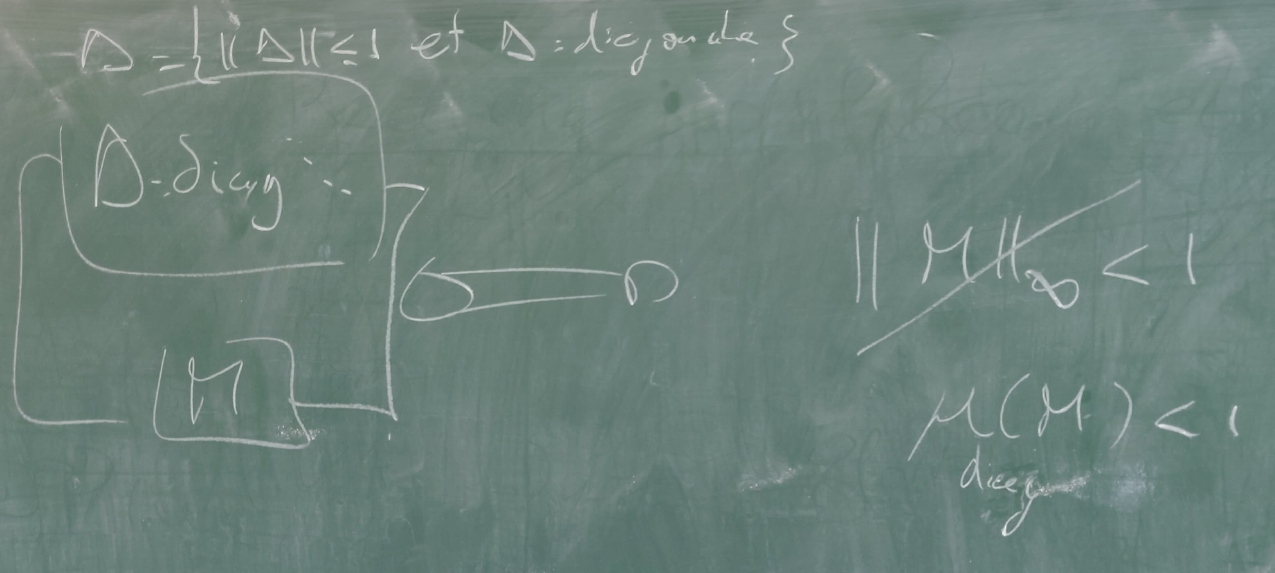 Δ = {‖Δ‖ ≤ 1 et Δ = diagonale}
Δ = diag
M
‖M‖∞ < 1
μ(M) < 1
diag